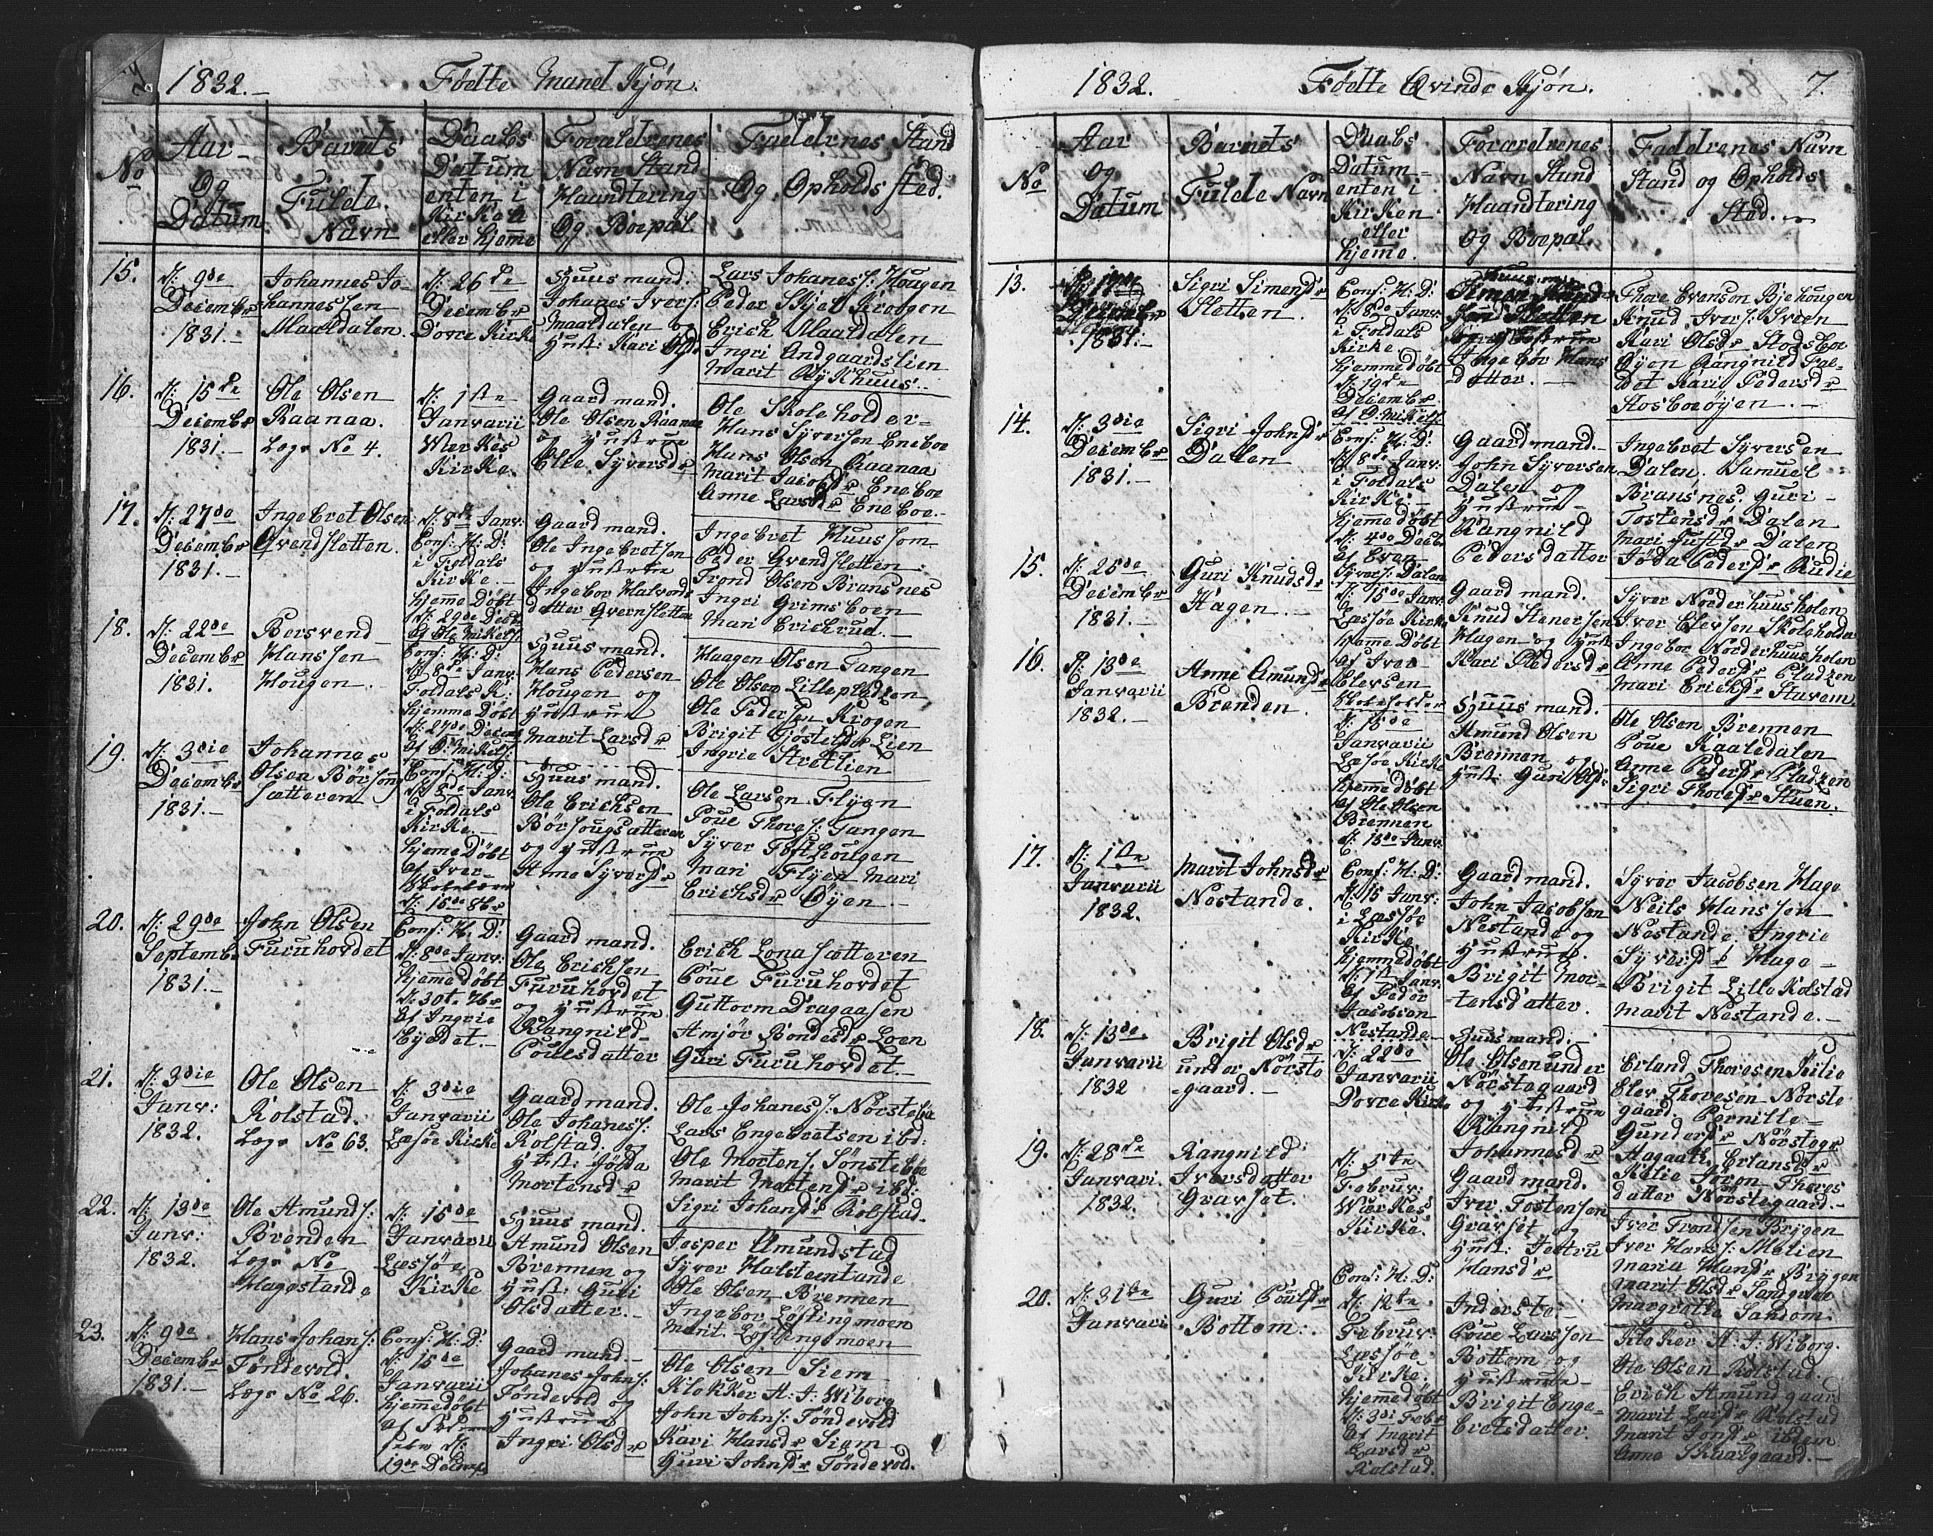 1832.
Fødte Mand Kjøn.
No
Aar
Og
Datum
Barnets
Fulde
Navn
Daabs
Datum
enten i
Kirken
eller hjeme
Foreldrenes
Navn Stand
Haandtering
Og Boepæl
Faddrnes Stand
Og Opholds sted.
15.
N: 9de
Decembr
1831.
Johannes Jo-
hannessen
Maaldalen.
N: 26de
Decembr
Dovre Kirke
Huusmand.
Johanes Ivers:
Maaldalen og
Hust: Kari Olsdr
Lars Johaness: Hougen
Peder Krogen
Erich Maaldalen
Ingri Andgaardslien
Marit
16.
N: 15de
Decembr
1831.
Ole Olsen
Raanaa.
Legr No 4.
N: 1ste
Janvarii
Werkes
Kirke.
Gaardmand.
Ole Olsen Raanaa
og Hustrue
Elie Syversdr
Ole Skoleholder
Hans Syversen Eneboe
Hans Olsen Raanaa
Marit Jacobsdr Eneboe
Anne Larsdr Eneboe.
17.
N: 27de
Decembr
1831.
Ingebret Olsen
Qvendsletten.
N: 8de Janv:
Conf: H: D:
i Foldals
Kirke.
hjeme Døbt
N: 29de Decbr
af Ole Mikels:
Gaardmand.
Ole Ingebretsen
og Hustrue
Ingebor Halvords
datter Qvernsletten
Ingebret Huusom
Peder Qvendsletten
Trond Olsen Bransnes
Ingri Grimsboen
Mari Erichrud.
18.
N: 22de
Decembr
1831.
Bersvend
Hanssen
Hougen.
Conf: H: D:
N 8de Janv:
Foldals K:
Hjemme Døbt
N: 27de Decem
af O: Mikels:
Huusmand.
Hans Pedersen
Hougen og
Hustrue
Marit Larsdr
Haagen Olsen Tangen
Ole Olsen Lillepladzen
Ole Pedersen Krogen
Brigit Lien
Ingrie Stretlien
19.
N: 3die
Decembr
1831.
Johannes
Olsen Børsoug
sætteren
Conf: H: D:
N 8de Janv:
i Foldals
Kirke.
Hjeme Døbt
af Iver
Huusmand.
Ole Erichsen
Børsougsætteren
og Hustrue
Anne Syversdr
Ole Larsen Flyen
Poue Thores: Tangen
Syver Tofthougen
Mari Flyen Mari
Erichsdr Øyen.
20.
N: 29de
Septemb
1831.
John Olsen
Furuhovdet
Conf: H: D:
N: 8de Janv:
hjeme døbt
N: 30te
af Ingrie
Gaardmand.
Ole Erichsen
Furuhovdet
og Hustrue
Rangnild
Pouelsdatter
Erich Lonasætteren
Poue Furuhovdet
Guttorm Dragaasen
Amjør Bondesdr Loen
Guri Furuhovdet.
21.
N: 3die
Janv:
1832.
Ole Olsen
Kolstad.
Legr No 63.
N: 3die
Janvarii
Lesøe Kirke
Gaardmand.
Ole Johanes:
Kolstad. og
Hust: Jølda
Mortensdr
Ole Johanes: Nørsteboe
Lars Engebretsen ibd:
Ole Mortens: Sønsteboe
Marit Mortensdr ibd.
Sigri Johansdr Kolstad.
22.
N: 13de
Janv:
1832.
Ole Amunds:
Brenden
Legr No
Haggestande
N: 15de
Janvarii
Lessøe
Kirke
Huusmand.
Amund Olsen
Brennen og
Hust: Guri
Olsdatter.
Jesper Amundstad
Syver Halsteenstande
Ole Olsen Brennen
Ingebor Løftingsmoen
Marit Løftingsmoen
23.
N: 9de
Decembr
1831.
Hans Johans:
Tøndevold.
Legr No 26.
Conf: H: D:
N: 15de
Janvarii
hjemedøbt
af
N:
19de Decemb
Gaardmand.
Johanes Johns:
Tøndevold og
Hustrue
Ingri Olsdr
Ole Olsen Siem
Klokker H: J: Wiborg
John Johns: Tøndevold
Kari Hansdr Siem
Guri Johnsdr Tøndevold.
1832.
Fødte Qvinde Kjøn.
7.
No
Aar
Og
Datum
Barnets
Fulde Navn
Daabs
Datum
enten i
Kirken
eller
hjeme.
Forældrenes
Navn Stand
Haandtering
Og Boepæl.
Faddrenes Navn
Stand og Opholds
Sted.
13.
Decembr
1831.
Sigri Simensdr
Sletten.
Conf: H: D:
N 8de Janv:
i Foldals
Kirke
hjemmedøbt
N: 19de
Decembr
af O: Mikels:
Huusmand
Simen
Sletten
Ingebor Hans
datter.
Thore Evensen Bjehougen
Knud Ivers: Sveen
Kari Olsdr Stodsboe
Øyen Rangnild
Kari Pedersdr
Stosboeøyen.
14.
N: 3die
Decembr
1831.
Sigri Johnsdr
Dalen
Conf: H: D:
N 8de Janv:
i Foldals
Kirke
hjemedøbt
N: 4de Decbr
af Even
Syvers: Dalen
Gaardmand.
John Syversen
Dalen og
Hustrue
Rangnild
Pedersdatter
Ingebret Syversen
Dalen. Samuel
Bransnes. Guri
Tostensdr Dalen
Mari Dalen
Jøda Pedersdr Rudie
15.
N: 25de
Decembr
1831.
Guri Knudsdr
Hagen
N: 15de Janv:
Lessøe Kirke
Hjeme Døbt
af Iver
Elevsen
Skoleholder
Gaardmand.
Knud Stenersen
Hagen og Hust
Kari Pedersdr
Syver Norderhuusholen
Iver Elevsen Skoleholder
Ingebor Norderhuusholen
Anne Pedersdr Pladzen
Mari Erichsdr Stavem
16.
N: 13de
Janvarii
1832.
Anne Amundsdr
Brenden.
N 15de
Janvarii
Lessøe Kirke
Hjemedøbt
af Ole Olsen
Brennen
N: 13de Janv.
Huusmand.
Amund Olsen
Brennen og
Hust: Guri Ols:
Ole Olsen Brennen
Poue Kaaledalen
Anne Pedersdr Pladzen
Sigri Thoresdr Stuen.
17.
N: 1ste
Janvarii
1832.
Marit Johnsdr
Nestande.
Conf: H: D:
N 15 Janv:
i Lessøe
Kirke
hjemmedøbt
N: 1st Janv:
af Peder
Jacobsen
Nestande.
Gaardmand.
John Jacobsen
Nestande og
Hustrue.
Brigit Mor-
tensdatter.
Syver Jacobsen Hage
Neils Hanssen
Nestande. Ingrie
Syversdr Hage
Brigit Lille Kolstad
Marit Nestande.
18.
N: 13de
Janvarii
1832
Brigit Olsdr
under Nørste
gaard.
N: 22de
Janvarii
Dovre Kirke
Huusmand.
Ole Olsen under
Nørstegaard
og Hustrue
Rangnild
Johannesdr
Erland Thoresen Kilie
Elev Thoresen Nørste
gaard. Pernille
Gundersdr Nørstegr
Aagaate Erlansdr
Kilie Joren Thores
datter Nørstegaard.
19.
N: 28de
Janvari
1832.
Rangnild
Iversdatter
Gravset.
N: 5te
Februr:
Werkes
Kirke.
Gaardmand.
Iver Tostensen
Gravset og
Hust: Jertru
Hansdr
Iver Trondsen Bryggen
Iver Hans: Melien
Maria Hansdr Bryggen
Marit Olsdr
Margrethe Sandom.
20.
N: 31te
Janvarii
Guri Pouelsdr
Bottem.
Conf: H: D:
N: 12te
Februr:
Lessøe
Kirke.
Hjemedøbt
N: 3di Febr
af Marit
Larsdr
Kolstad.
Inderste
Poue Larssen
Bottom og
Hustrue
Brigit Enge-
bretsdatter.
Klokker H: J: Wiborg.
Ole Olsen Kolstad.
Erich Amundgaard
Marit Larsdr Kolstad
Marit Tondr ibdem
Anne Skaargaard.